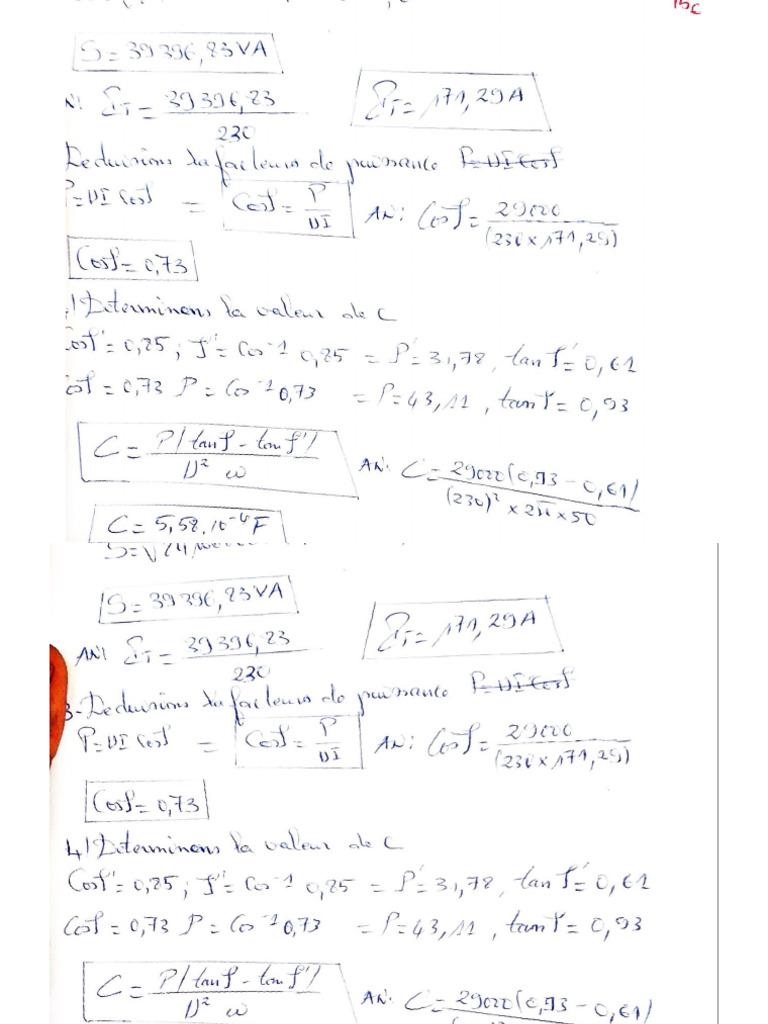 15c
S = 39 396,83 VA
AN: I_T = 39396,23 / 230
I_T = 171,29 A
Deduisons la facteurs de puissance P=UI Cosφ
P=UI Cosφ = Cosφ = P / UI AN: Cosφ = 29020 / (230 x 171,29)
Cosφ = 0,73
! Determinons la valeur de C
Cosφ' = 0,85 ; φ' = Cos⁻¹ 0,85 = φ' = 31,78, tan φ' = 0,61
Cosφ = 0,73 φ = Cos⁻¹ 0,73 = φ = 43,11, tanφ = 0,93
C = P(tanφ - tanφ') / U² ω AN: C = 29020(0,93 - 0,61) / (230)² x 2π x 50
C = 5,58.10⁻⁴ F
S = 39 396,83 VA
AN: I_T = 39396,23 / 230
I_T = 171,29 A
3-Deduisons la facteurs de puissance P=UI Cosφ
P=UI Cosφ = Cosφ = P / UI AN: Cosφ = 29020 / (230 x 171,29)
Cosφ = 0,73
4! Determinons la valeur de C
Cosφ' = 0,85 ; φ' = Cos⁻¹ 0,85 = φ' = 31,78, tan φ' = 0,61
Cosφ = 0,73 φ = Cos⁻¹ 0,73 = φ = 43,11, tanφ = 0,93
C = P(tanφ - tanφ') / U² ω AN: C = 29020(0,93 - 0,61)